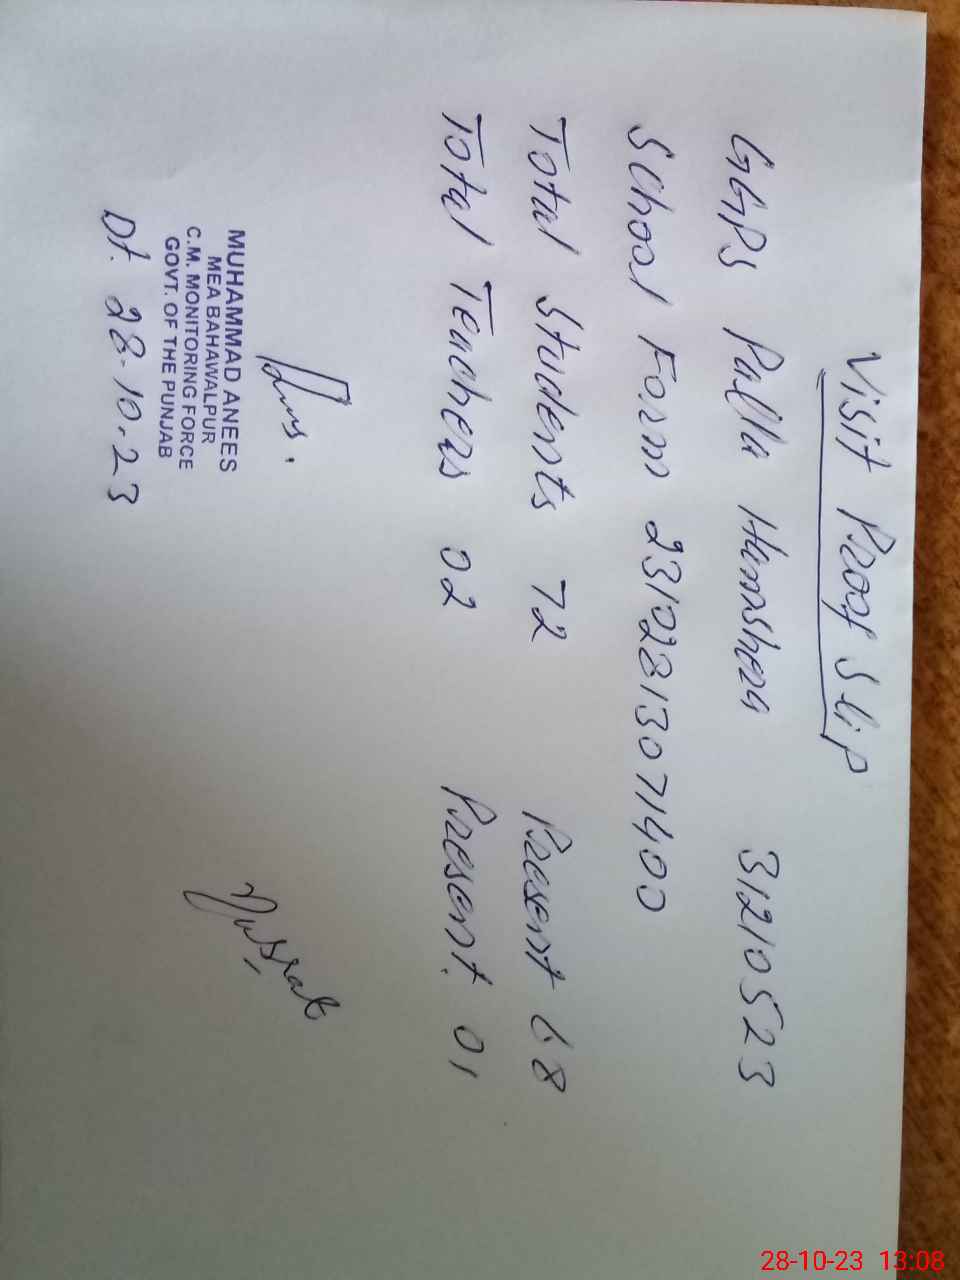 Visit Proof Slip
GGPS Palla Hamshera 31210523
School Form 231028130 71400
Total Students 72 Present 68
Total Teachers 02 Present. 01
MUHAMMAD ANEES
MEA BAHAWALPUR
C.M. MONITORING FORCE
GOVT. OF THE PUNJAB
Dt. 28-10-23
28-10-23 13:08